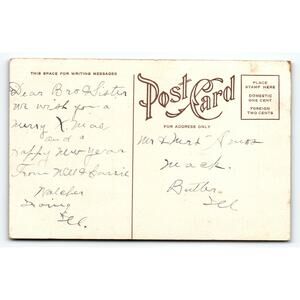 THIS SPACE FOR WRITING MESSAGES
Dear Bro & Sister
we wish you a
merry X mas
and a
happy new year
From Will & Carrie
Walcher
Irving
Ill.
Post Card
FOR ADDRESS ONLY
PLACE
STAMP HERE
DOMESTIC
ONE CENT
FOREIGN
TWO CENTS
Mr & Mrs Amos
Mack
Butler
Ill